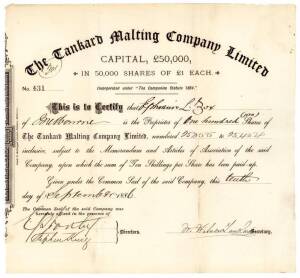 The Tankard Malting Company Limited
CAPITAL, £50,000,
IN 50,000 SHARES OF £1 EACH.
Incorporated under "The Companies Statute 1864."
No. 431
This is to Certify that L. Box
of Melbourne is the Proprietor of One hundred (100) Shares of
The Tankard Malting Company Limited, numbered to
inclusive, subject to the Memorandum and Articles of Association of the said
Company, upon which the sum of Ten Shillings per Share has been paid up.
Given under the Common Seal of the said Company, this tenth
day of September 1886.
The Common Seal of the said Company was
hereunto affixed in the presence of
Stephen King
Directors.
Secretary.